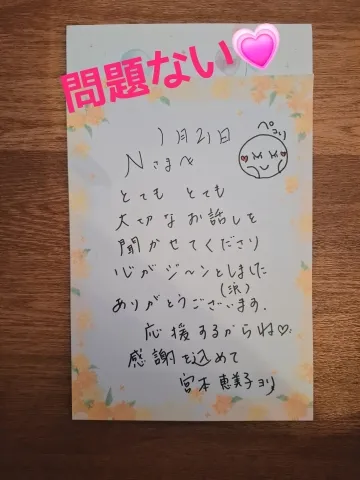 問題ない
1月21日
ペコリ
Nさまへ
とても とても
大切なお話しを
聞かせてくださり
心がジ〜ンとしました
(涙)
ありがとうございます.
応援するからね♡
感謝を込めて
宮本恵美子ヨリ